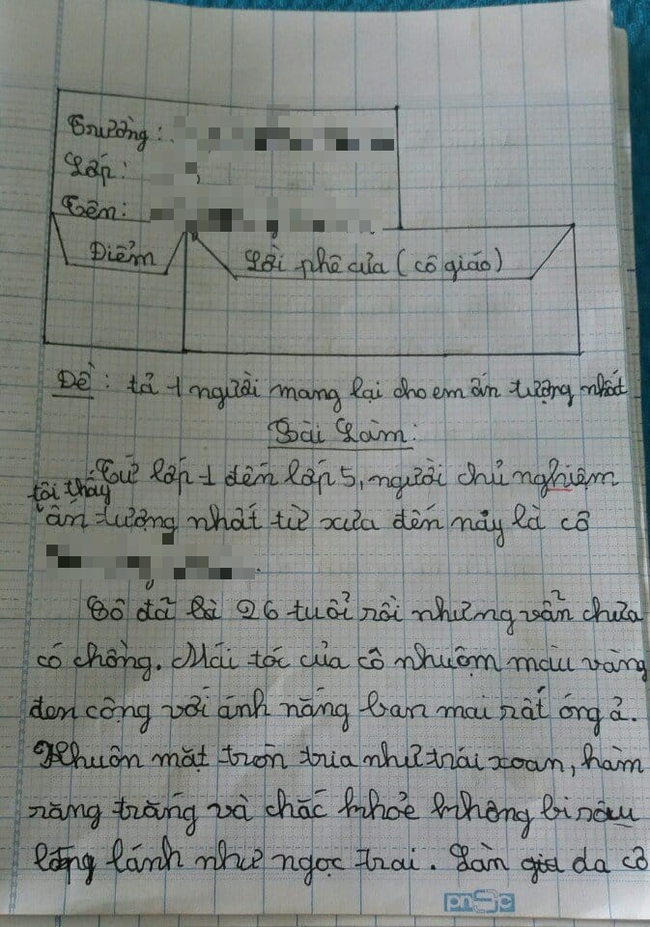 Trường:
Lớp:
Tên:
Điểm
Lời phê của (cô giáo)
Đề: tả 1 người mang lại cho em ấn tượng nhất
Bài Làm:
Từ lớp 1 đến lớp 5, người chủ nghiệm
tôi thấy
ấn tượng nhất từ xưa đến nay là cô
Cô đã là 26 tuổi rồi nhưng vẫn chưa
có chồng. Mái tóc của cô nhuộm màu vàng
đen cộng với ánh nắng ban mai rất óng ả.
Khuôn mặt tròn trịa như trái xoan, hàm
răng trắng và chắc khỏe không bị sâu
lóng lánh như ngọc trai. Làn da cô
pnSc